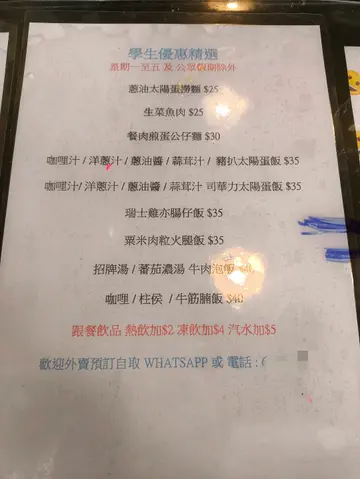 學生優惠精選
星期一至五 及 公眾假期除外
蔥油太陽蛋撈麵 $25
生菜魚肉 $25
餐肉煎蛋公仔麵 $30
咖哩汁 / 洋蔥汁 / 蔥油醬 / 蒜茸汁 / 豬扒太陽蛋飯 $35
咖哩汁/ 洋蔥汁 / 蔥油醬 / 蒜茸汁 司華力太陽蛋飯 $35
瑞士雞亦腸仔飯 $35
粟米肉粒火腿飯 $35
招牌湯 / 蕃茄濃湯 牛肉泡飯
咖哩 / 柱侯 / 牛筋腩飯 $40
跟餐飲品 熱飲加$2 凍飲加$4 汽水加$5
歡迎外賣預訂自取 WHATSAPP 或 電話 :